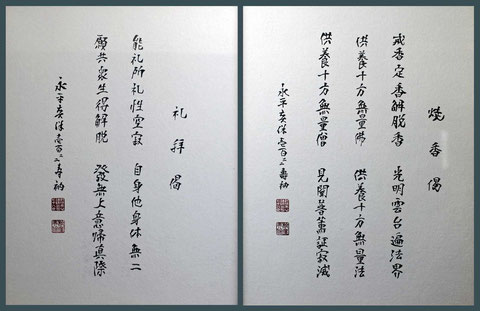 焼香偈
戒香定香解脱香 光明雲台遍法界
供養十方無量佛 供養十方無量法
供養十方無量僧 見聞普薫証寂滅
永平奕保壱百二寿衲
礼拝偈
能礼所礼性空寂 自身他身体無二
願共衆生得解脱 發無上意帰真際
永平奕保壱百二寿衲